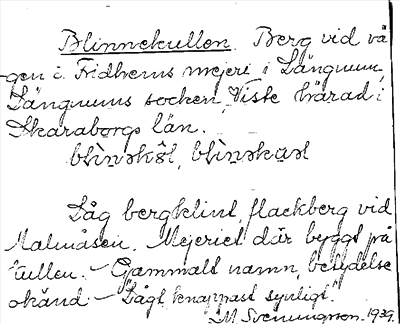 Blinnekullen. Berg vid vä-
gen i Fridhems mejeri i Längnum,
Längnums socken, Viste härad i
Skaraborgs län.
Låg bergklint, flackberg vid
Malmåsen. Mejeriet där byggt på
kullen. - Gammalt namn, betydelse
okänd - "Lågt knappast synligt."
M Svenungson. 1939.